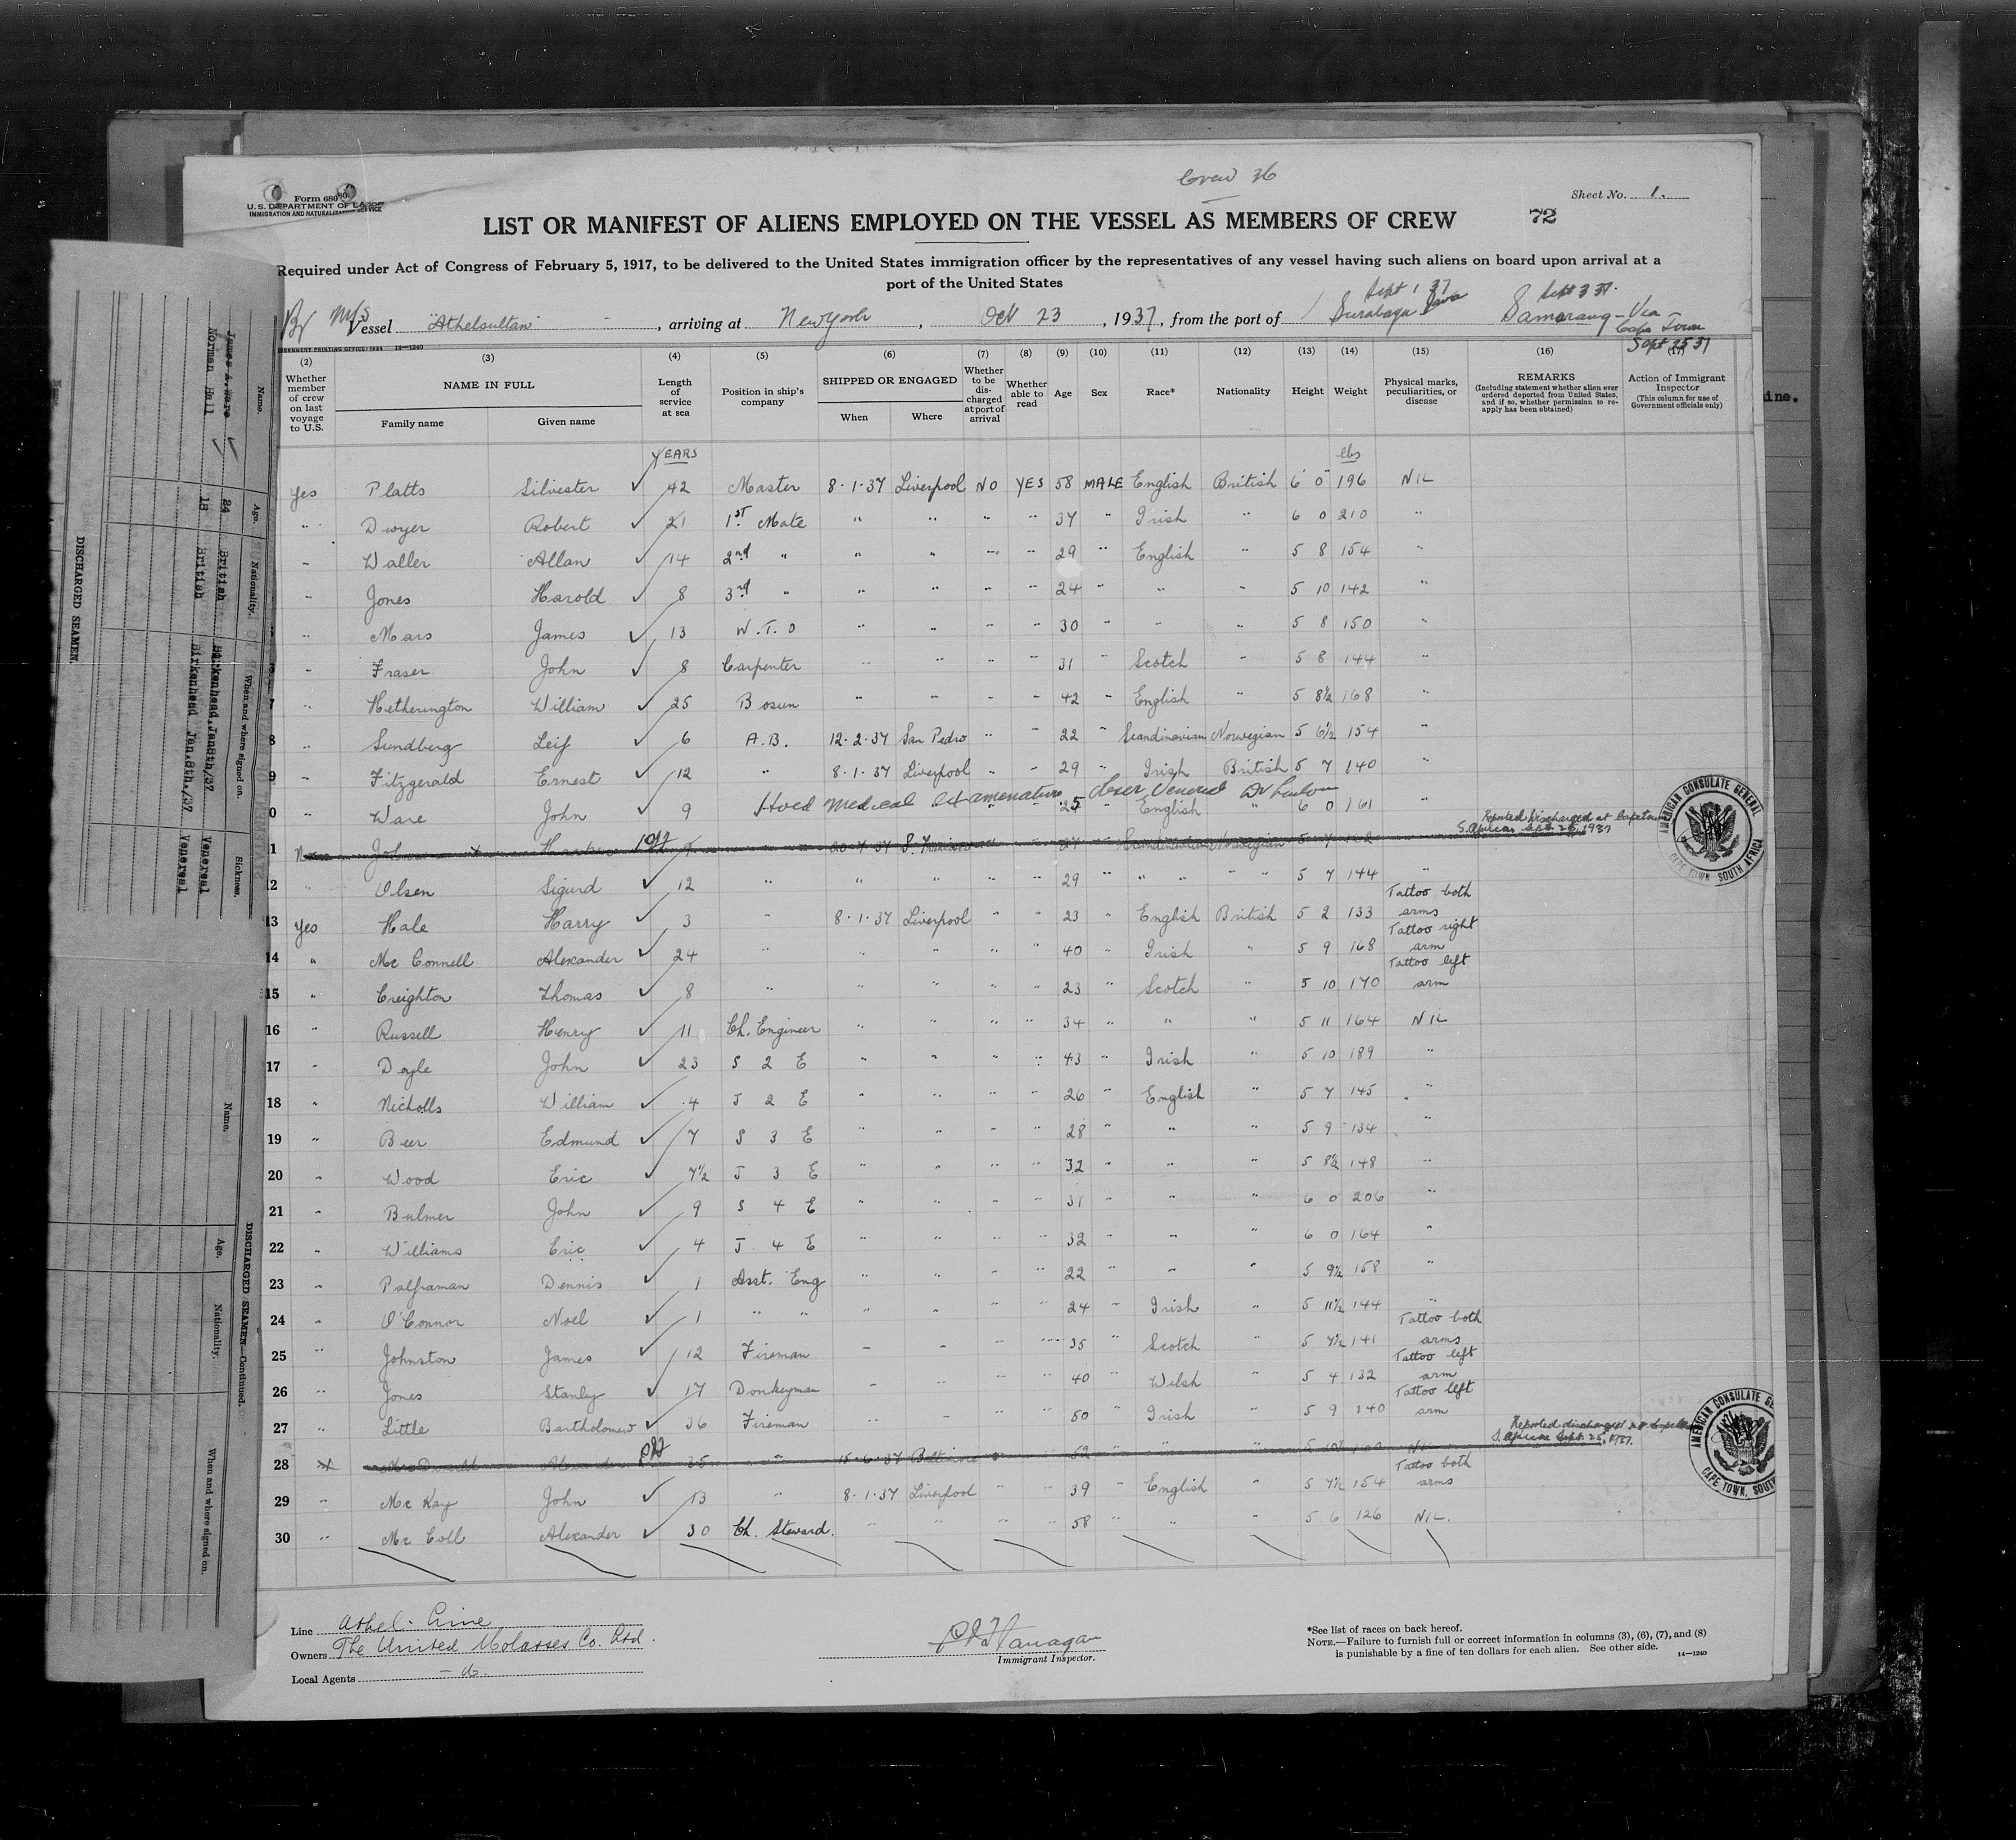 Crew 36
Form 680
U.S. DEPARTMENT OF LABOR
IMMIGRATION AND NATURALIZATION SERVICE
Sheet No. 1.
LIST OR MANIFEST OF ALIENS EMPLOYED ON THE VESSEL AS MEMBERS OF CREW
72
Required under Act of Congress of February 5, 1917, to be delivered to the United States immigration officer by the representatives of any vessel having such aliens on board upon arrival at a
port of the United States
Sept 1 37 Sept 3 37.
Br M/S Vessel "Athelsultan", arriving at New York, Oct 23, 1937, from the port of Surabaga Java Samarang - Via
Cape Town
Sept 25 37
GOVERNMENT PRINTING OFFICE: 1934 14—1240
(2) (3) (4) (5) (6) (7) (8) (9) (10) (11) (12) (13) (14) (15) (16) (17)
Whether member of crew on last voyage to U.S.
NAME IN FULL
Family name
Given name
Length of service at sea
Position in ship's company
SHIPPED OR ENGAGED
When
Where
Whether to be discharged at port of arrival
Whether able to read
Age
Sex
Race*
Nationality
Height
Weight
Physical marks, peculiarities, or disease
REMARKS
(Including statement whether alien ever ordered deported from United States, and if so, whether permission to reapply has been obtained)
Action of Immigrant Inspector
(This column for use of Government officials only)
YEARS lbs
Yes Platts Silvester ✓ 42 Master 8·1·37 Liverpool NO YES 58 MALE English British 6 0 196 NIL
" Dwyer Robert ✓ 21 1ST Mate " " " " 37 " Irish " 6 0 210 "
" Waller Allan ✓ 14 2nd " " " " " 29 " English " 5 8 154 "
" Jones Harold ✓ 8 3rd " " " " " 24 " " " 5 10 142 "
" Mars James ✓ 13 W.T.O " " " " 30 " " " 5 8 150 "
" Fraser John ✓ 8 Carpenter " " " " 31 " Scotch " 5 8 144 "
7 " Hetherington William ✓ 25 Bosun " " " " 42 " English " 5 8½ 168 "
8 " Sundberg Leif ✓ 6 A.B. 12·2·37 San Pedro " " 22 " Scandinavian Norwegian 5 6½ 154 "
9 " Fitzgerald Ernest ✓ 12 " 8·1·37 Liverpool " " 29 " Irish British 5 7 140 "
Hoed medical examenature
0 " Ware John ✓ 9 " " 25 English " 6 0 161 "
Reported Discharged at Capetown
S. Africa Sept 25, 1937
1 20·7·37 27 Scandinavian Norwegian
2 " Olsen Sigurd ✓ 12 " " " " " 29 " " " " " 5 7 144 "
13 Yes Hale Harry ✓ 3 " 8·1·37 Liverpool " " 23 " English British 5 2 133 Tattoo both arms
14 " Mc Connell Alexander ✓ 24 " " " " " 40 " Irish " 5 9 168 Tattoo right arm
15 " Creighton Thomas ✓ 8 " " " " " 23 " Scotch " 5 10 170 Tattoo left arm
16 " Russell Henry ✓ 11 Ch. Engineer " " " " 34 " " " 5 11 164 NIL
17 " Doyle John ✓ 23 S 2 E " " " " 43 " Irish " 5 10 189 "
18 " Nicholls William ✓ 4 J 2 E " " " " 26 " English " 5 7 145 "
19 " Beer Edmund ✓ 7 S 3 E " " " " 28 " " " 5 9 134 "
20 " Wood Eric ✓ 7½ J 3 E " " " " 32 " " " 5 8½ 148 "
21 " Bulmer John ✓ 9 S 4 E " " " " 31 " " " 6 0 206 "
22 " Williams Eric ✓ 4 J 4 E " " " " 32 " " " 6 0 164 "
23 " Palframan Dennis ✓ 1 Asst. Eng " " " " 22 " " " 5 9½ 158 "
24 " O'Connor Noel ✓ 1 " " " " " " 24 " Irish " 5 11½ 144 "
25 " Johnston James ✓ 12 Fireman " " " " 35 " Scotch " 5 7½ 141 Tattoo both arms
26 " Jones Stanley ✓ 17 Donkeyman " " " " 40 " Welsh " 5 4 132 Tattoo left arm
27 " Little Bartholomew ✓ 36 Fireman " " " " 50 " Irish " 5 9 140 Tattoo left arm
Reported discharged at Cape
S. Africa Sept. 25, 1937.
28 35 " 15·6·37 Baltimore 52 " " " NIL
29 " Mc Kay John ✓ 13 " 8·1·37 Liverpool " " 39 " English " 5 7½ 154 Tattoo both arms
30 " Mc Coll Alexander ✓ 30 Ch. Steward. " " " " 58 " " " 5 6 126 NIL.
Line Athel Line
Owners The United Molasses Co. Ltd.
Local Agents — do.
Immigrant Inspector.
*See list of races on back hereof.
NOTE.—Failure to furnish full or correct information in columns (3), (6), (7), and (8)
is punishable by a fine of ten dollars for each alien. See other side. 14—1240
AMERICAN CONSULATE GENERAL
CAPE TOWN SOUTH AFRICA
AMERICAN CONSULATE GE
CAPE TOWN, SOUT
ine.
DISCHARGED SEAMEN.
Name. Age. Nationality. When and where signed on. Sickness.
James A. Ware 24 British Birkenhead, Jan 8th/37 Venereal
Norman Hall 18 British Birkenhead Jan. 8th./37 Venereal
DISCHARGED SEAMEN—Continued.
Name. Age. Nationality. When and where signed on.